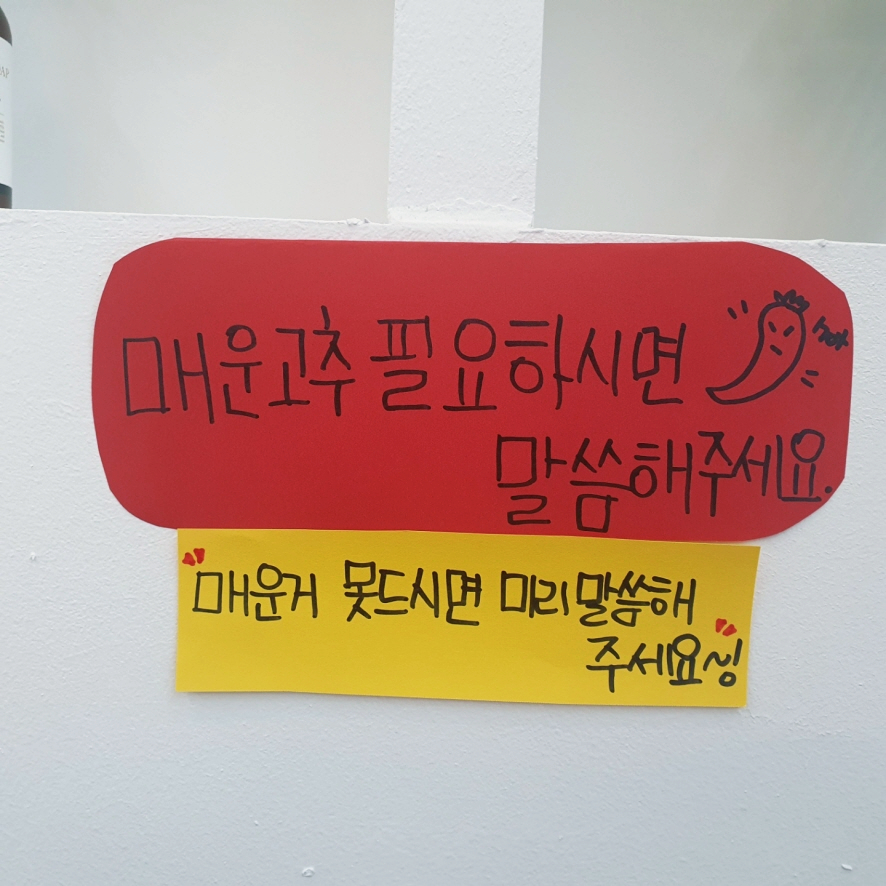 매운고추 필요하시면
hot
말씀해주세요.
"매운거 못드시면 미리말씀해
주세요~!"